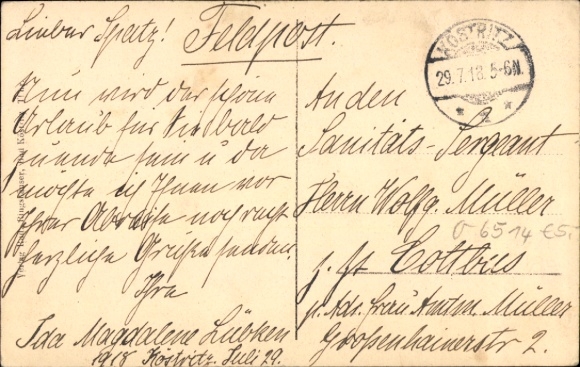 Lieber Spatz!
Feldpost.
Nun wird der schöne
Urlaub für Sie bald
zuende sein u. da
möchte ich Ihnen vor
Ihrer Abreise noch recht
herzliche Grüße senden.
Ihre
Ida Magdalene Lübken
1918 Köstritz. Juli 29.
KÖSTRITZ
29.7.18. 5-6N.
An den
Sanitäts-Sergeant
Herrn Wolfg. Müller
z. Zt. Cottbus
p. Adr. Frau Amtm. Müller
Großenhainerstr 2.
6514 €5.-